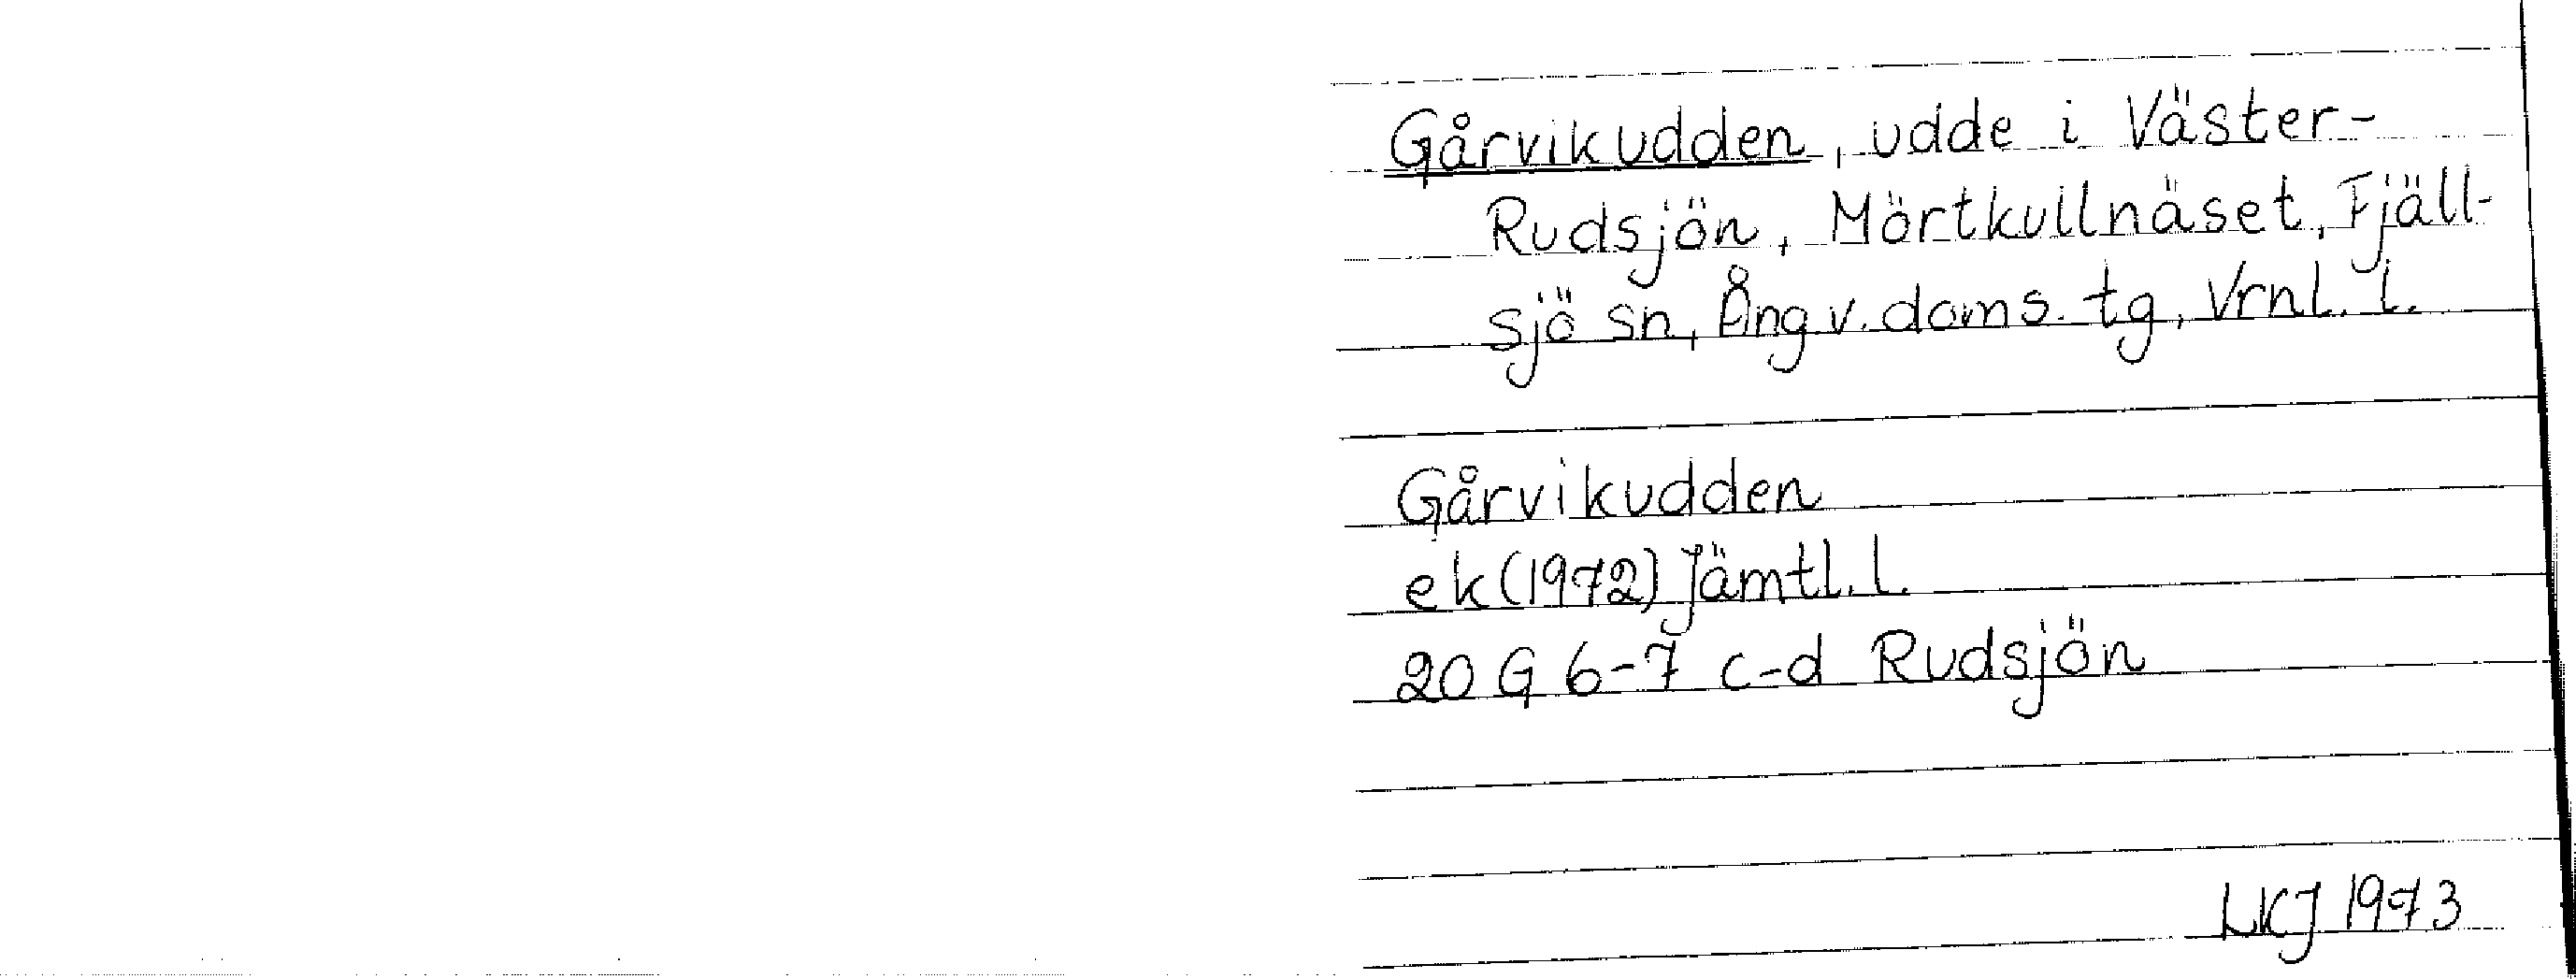 Gårvikudden, udde i Väster-
Rudsjön, Mörtkullnäset, Fjäll-
sjö sn, Ång v. doms. tg, Vrnl. l.
Gårvikudden
ek (1972) Jämtl. l.
20 G 6-7 c-d Rudsjön
LKJ 1973